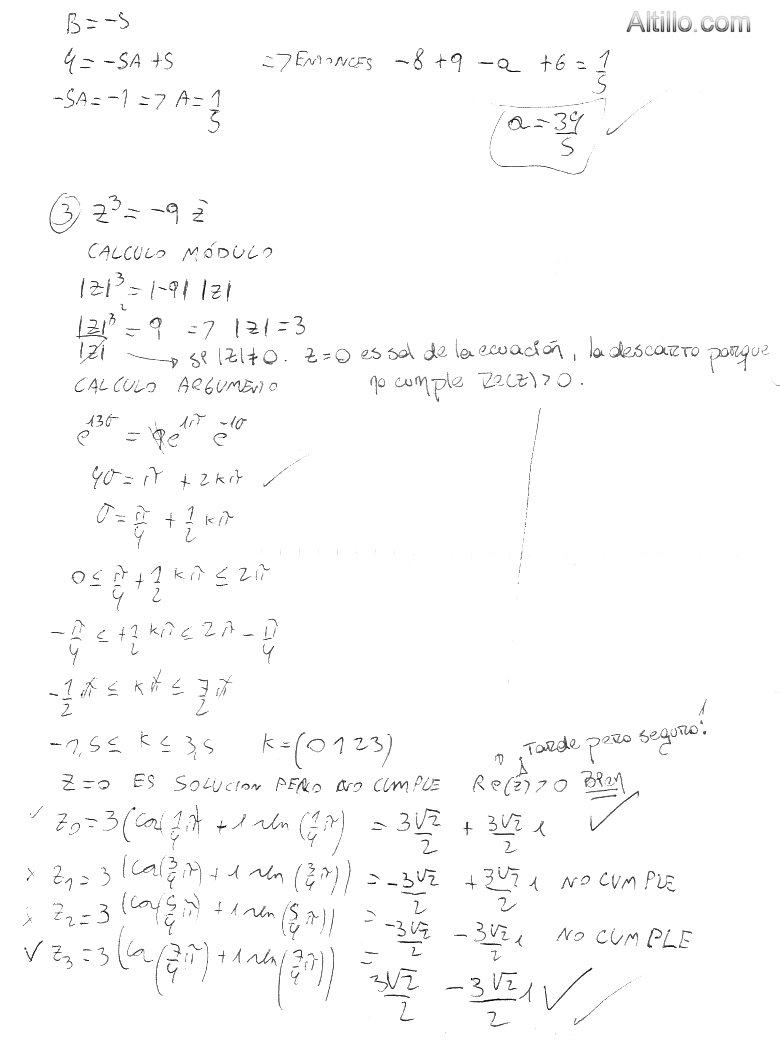 Altillo.com
B = -5
4 = -5A + 5 => ENTONCES -8 + 9 - a + 6 = 1/5
-5A = -1 => A = 1/5
a = 34/5 ✓
③ z³ = -9 z̄
CALCULO MÓDULO
|z|³ = |-9| |z|
|z|³/|z| ² = 9 => |z| = 3
→ si |z| ≠ 0. z=0 es sol de la ecuación, la descarto porque
no cumple Re(z) > 0.
CALCULO ARGUMENTO
e^{i3σ} = e^{iπ} e^{-iσ}
4σ = π + 2kπ ✓
σ = π/4 + 1/2 kπ
0 ≤ π/4 + 1/2 kπ ≤ 2π
-π/4 ≤ +1/2 kπ ≤ 2π - π/4
-1/2 π ≤ kπ ≤ 7/2 π
-1,5 ≤ k ≤ 3,5 k = (0 1 2 3)
Tarde pero seguro!
z=0 ES SOLUCION PERO NO CUMPLE Re(z) > 0 Bien
✓ z₀ = 3 (cos(1/4 π) + i sen(1/4 π)) = 3√2/2 + 3√2/2 i ✓
x z₁ = 3 (cos(3/4 π) + i sen(3/4 π)) = -3√2/2 + 3√2/2 i NO CUMPLE
x z₂ = 3 (cos(5/4 π) + i sen(5/4 π)) = -3√2/2 - 3√2/2 i NO CUMPLE
✓ z₃ = 3 (cos(7/4 π) + i sen(7/4 π)) = 3√2/2 - 3√2/2 i ✓